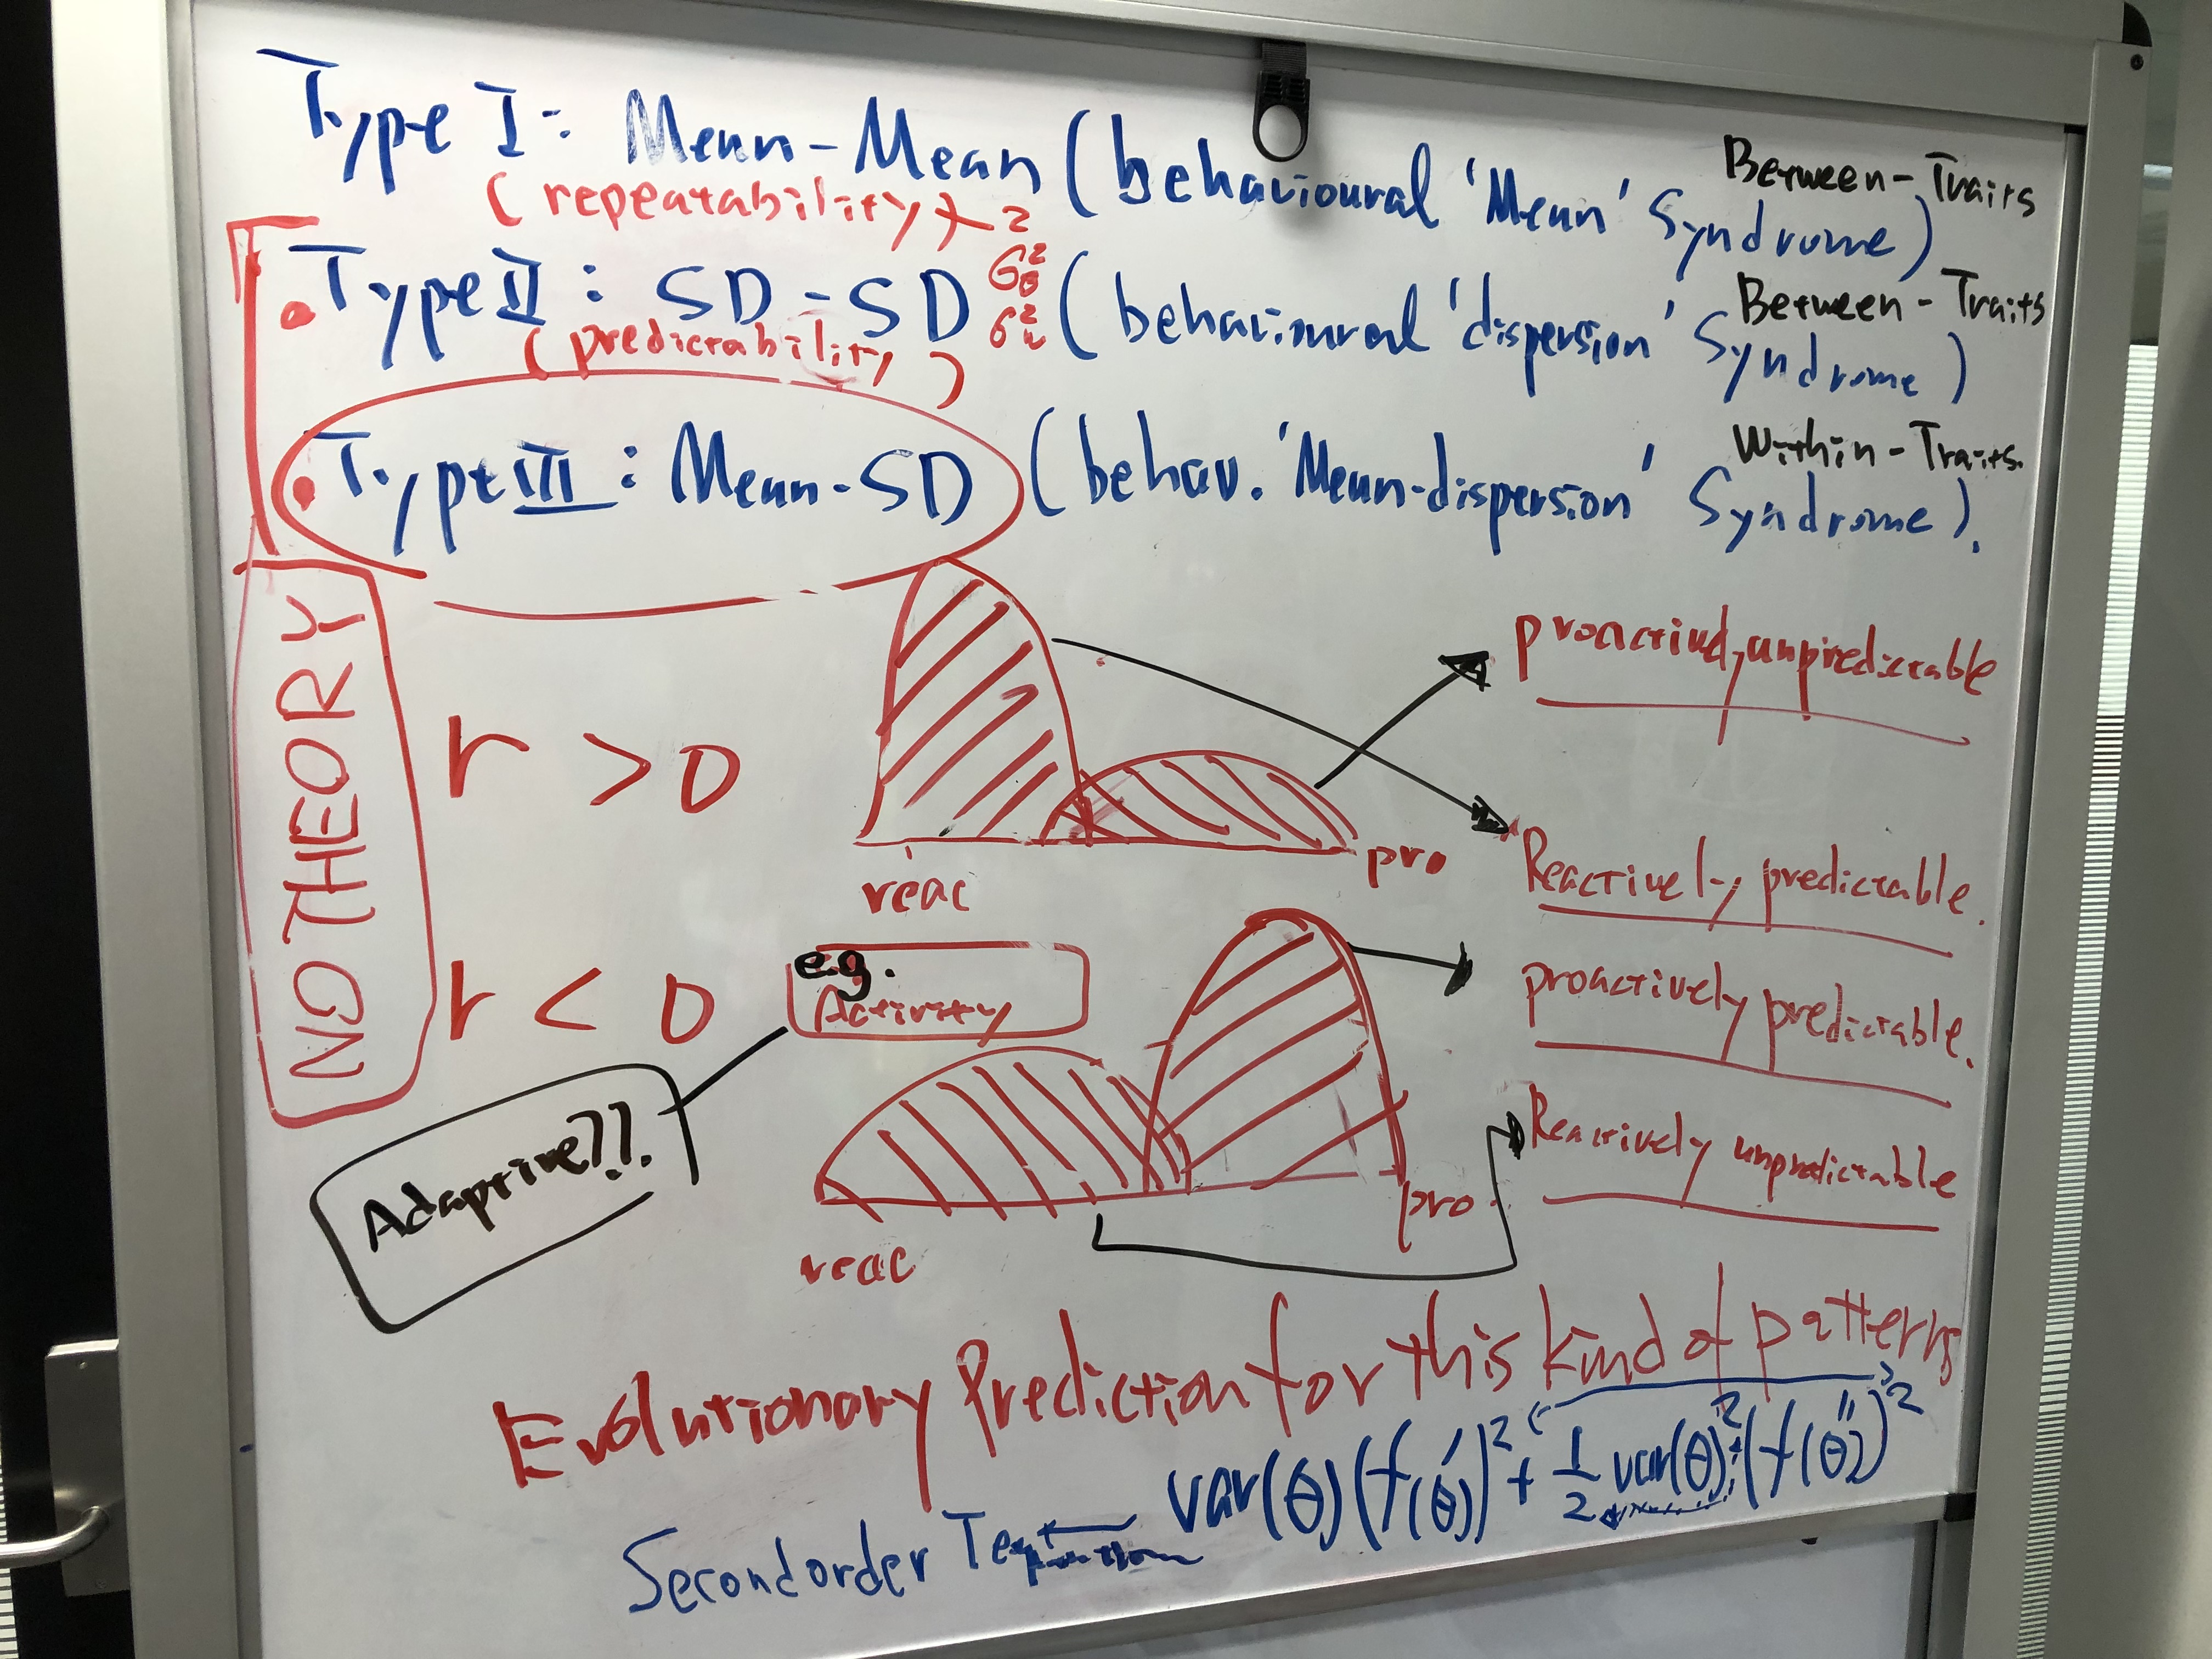 Type I: Mean-Mean (behavioural 'Mean' Syndrome)
Between-Traits
(repeatability) 2
Type II: SD-SD (behavioural 'dispersion' Syndrome)
Between-Traits
(predictability)
Type III: Mean-SD (behav. 'Mean-dispersion' Syndrome).
Within-Traits.
NO THEORY
r > 0
reac
pro
proactively unpredictable
Reactively predictable.
r < 0
e.g.
Activity
Adaptive??.
reac
pro
proactively predictable.
Reactively unpredictable
Evolutionary Prediction for this kind of patterns
var(θ)(f'(θ))² + 1/2 var(θ)²(f''(θ))²
Second order